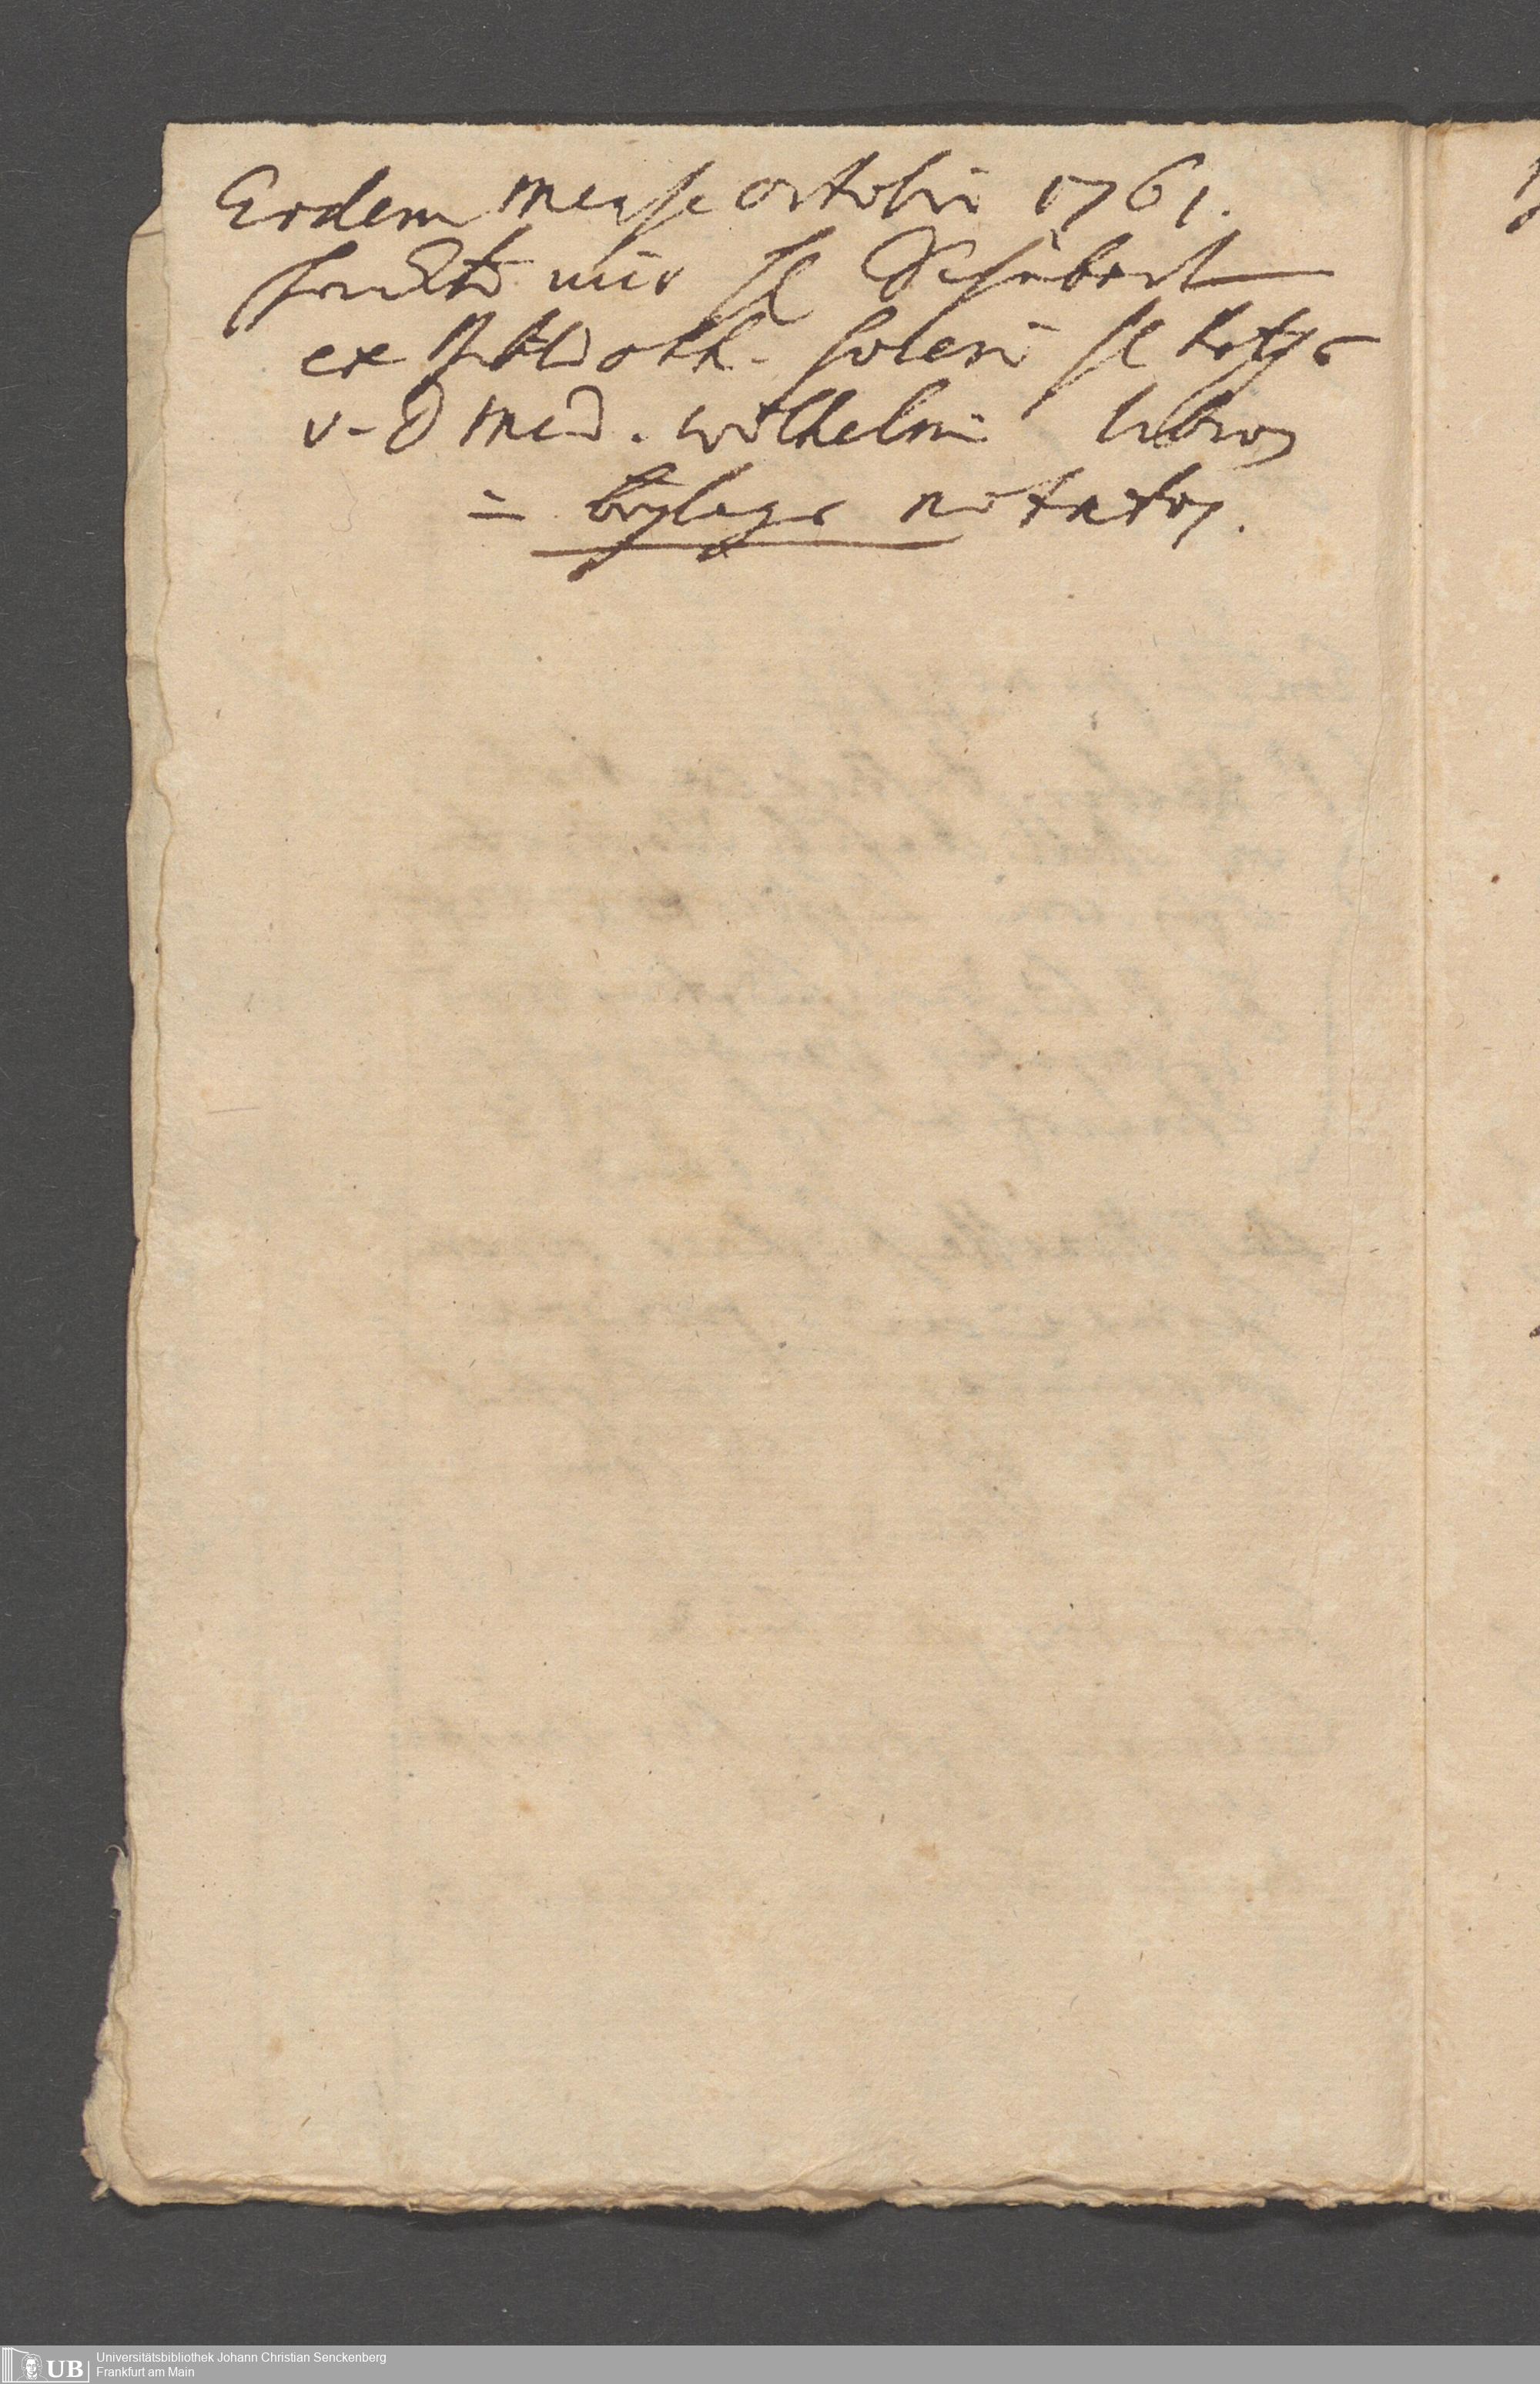 Eodem mense octobri 1761.
mir H Schubart
ex Biblioth.
v. D Med. Wilhelmi libros
in beylage notatos.
UB Universitätsbibliothek Johann Christian Senckenberg
Frankfurt am Main